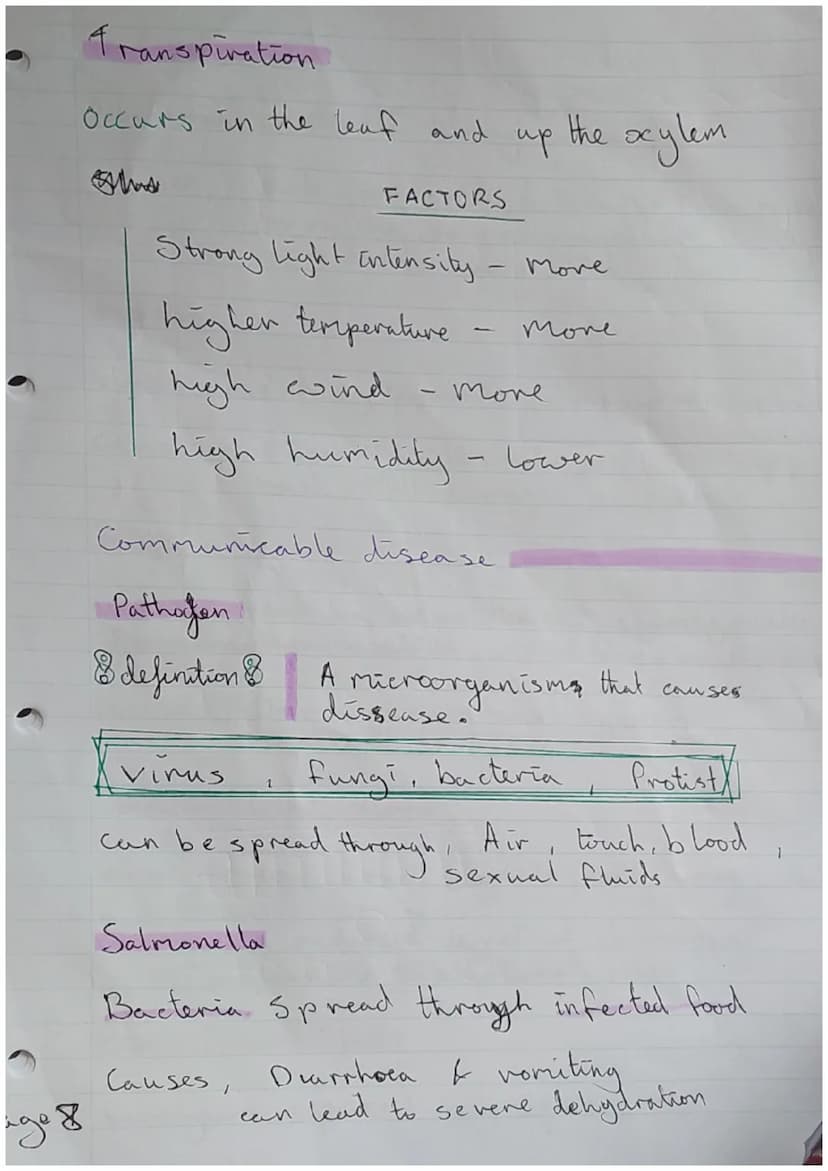 Transpiration
Occurs in the leaf and up the xylem
FACTORS
Strong light intensity - more
higher temperature - more
high wind - more
high humidity - lower
Communicable disease
Pathogen
definition A microorganism that causes
dissease.
Virus , fungi, bacteria , Protist
can be spread through, Air , touch, blood ,
sexual fluids
Salmonella
Bacteria spread through infected food
Causes, Diarrhoea & vomiting
can lead to severe dehydration
age 8